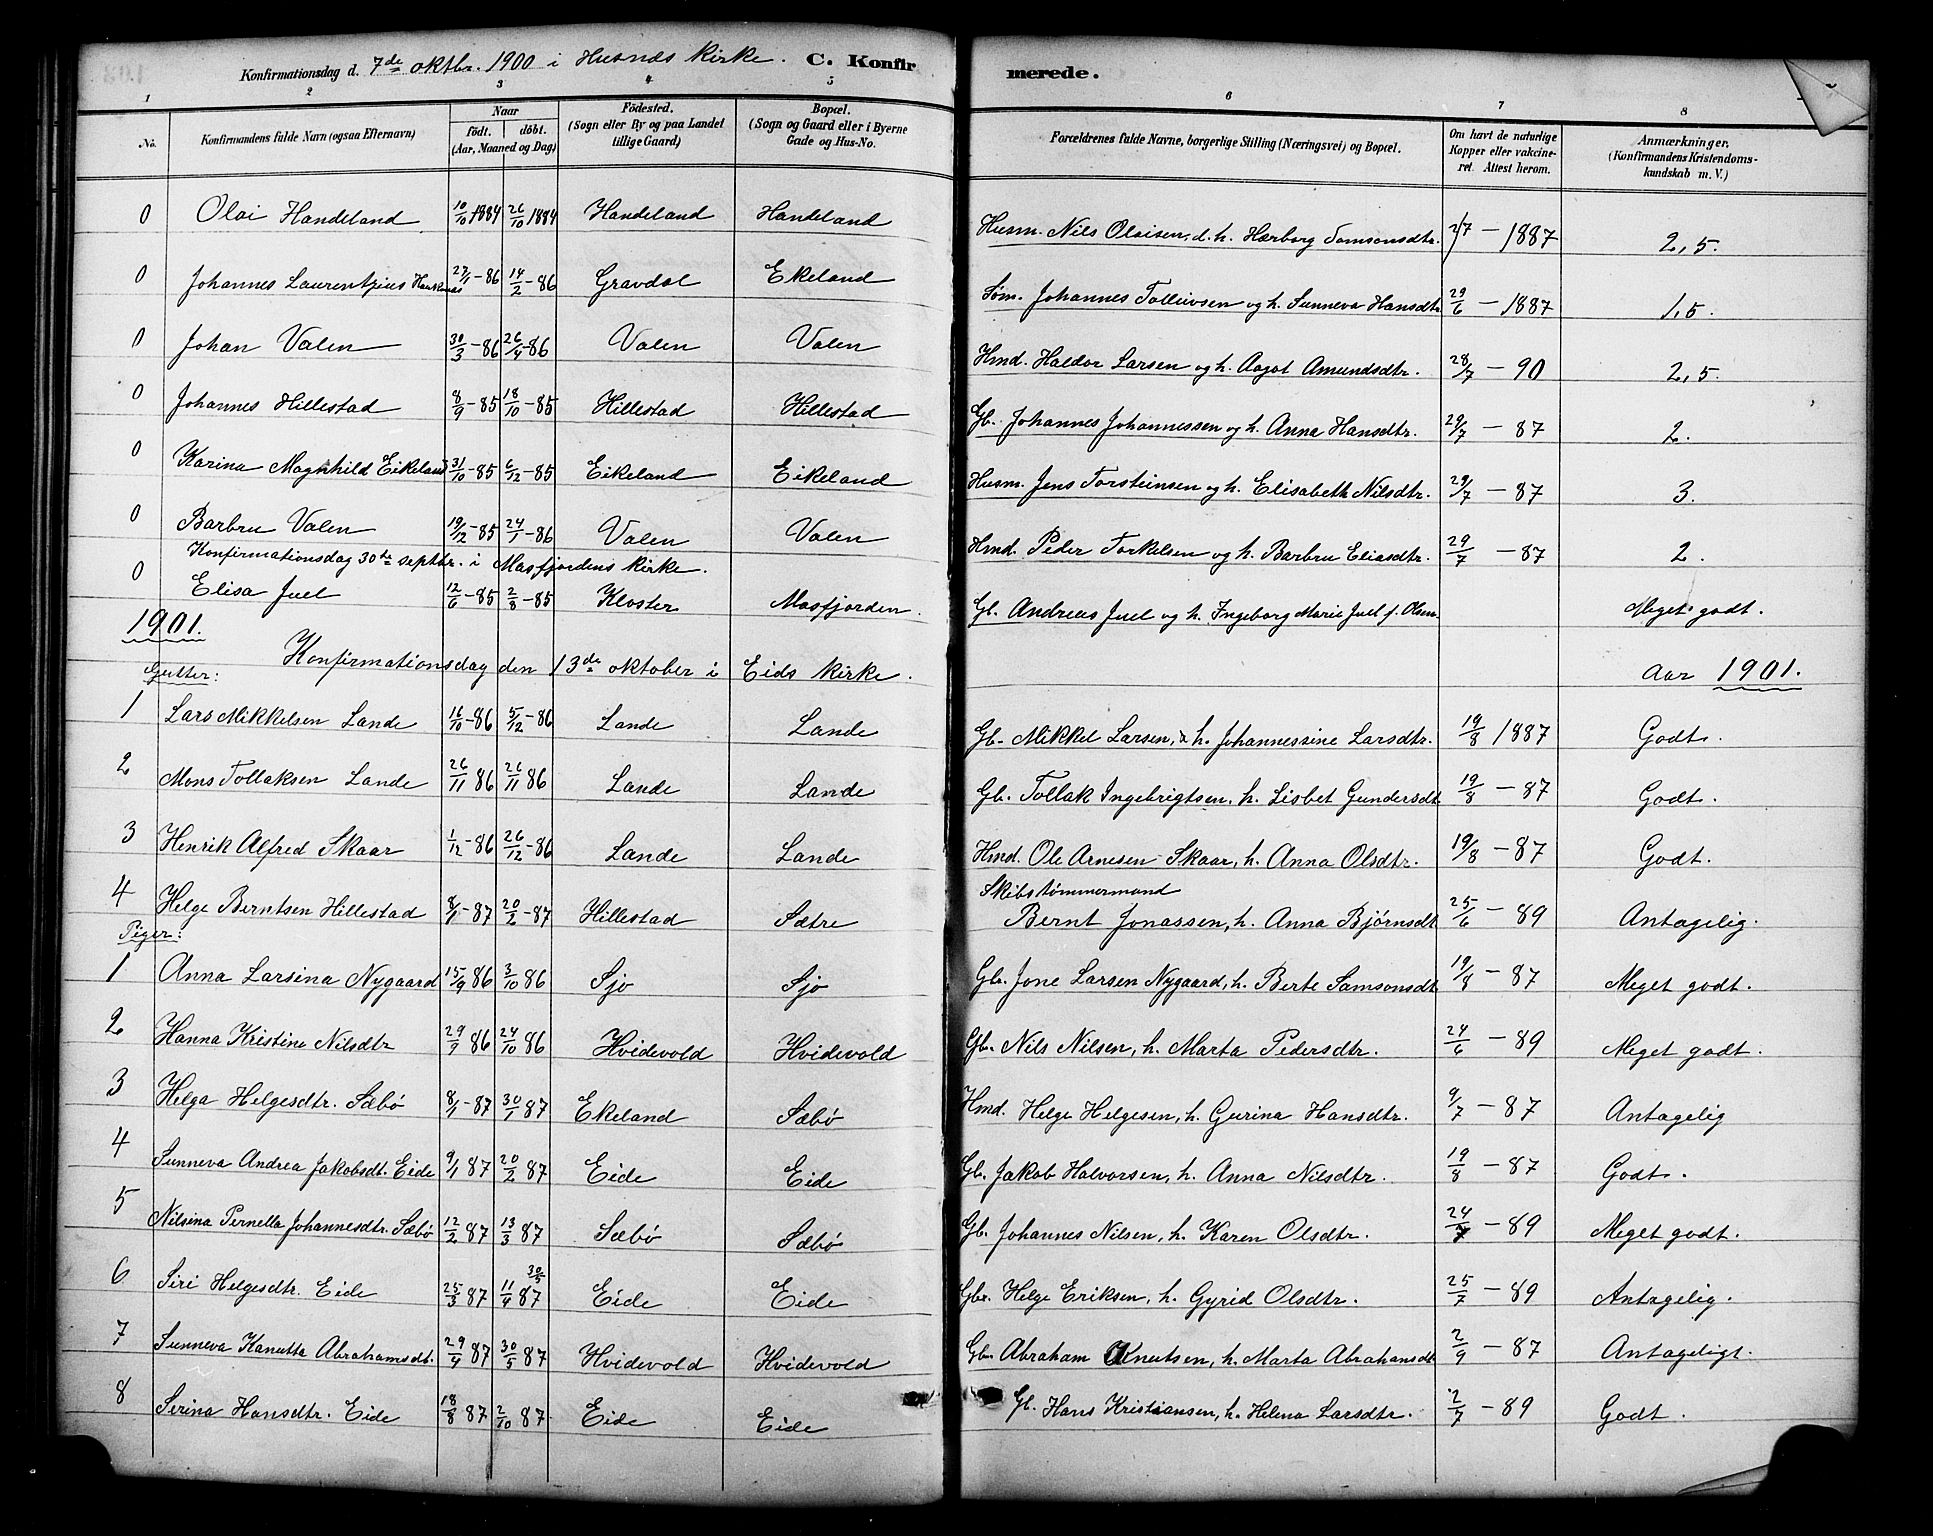 Konfirmationsdag d. 7de oktbr. 1900 i Husnæs Kirke. C. Konfirmerede.
1 2 3 4 5 6 7 8
No. Konfirmandens fulde Navn (ogsaa Efternavn) Naar födt. döbt. (Aar, Maaned og Dag) Födested. (Sogn eller By og paa Landet tillige Gaard) Bopæl. (Sogn og Gaard eller i Byerne Gade og Hus-No. Forældrenes fulde Navne, borgerlige Stilling (Næringsvei) og Bopæl. Om havt de naturlige Kopper eller vakcineret. Attest herom. Anmærkninger. (Konfirmandens Kristendomskundskab m. V.)
0 Oloi Handeland 10/10 1884 26/10 1884 Handeland Handeland Husm. Nils Oloisen, d. h. Hærborg Samsonsdtr. 2/7 - 1887 2,5.
0 Johannes Laurentzius 27/1 - 86 14/2 - 86 Gravdal Ekeland Søm. Johannes Tolleivsen og h. Sunneva Hansdtr. 29/6 - 1887 1,5.
0 Johan Valen 30/3 - 86 26/4 - 86 Valen Valen Hmd. Haldor Larsen og h. Aagot Amundsdtr. 28/7 - 90 2,5.
0 Johannes Hillestad 8/9 - 85 18/10 - 85 Hillestad Hillestad Gb. Johannes Johannessen og h. Anna Hansdtr. 29/7 - 87 2.
0 Karina Magnhild Eikeland 31/10 - 85 6/12 - 85 Eikeland Eikeland Husm. Jens Torsteinsen og h. Elisabeth Nilsdtr. 29/7 - 87 3.
0 Barbru Valen 19/12 - 85 24/1 - 86 Valen Valen Hmd. Peder Torkelsen og h. Barbru Eliasdtr. 29/7 - 87 2.
Konfirmationsdag 30te septbr. i Masfjordens Kirke.
0 Elisa Juel 12/6 - 85 2/8 - 85 Kloster Masfjorden. Gb. Andreas Juel og h. Ingeborg Marie Juel f. Olsen Meget godt.
1901.
Konfirmationsdag den 13de oktober i Eids Kirke. Aar 1901.
Gutter:
1 Lars Mikkelsen Lande 16/10 - 86 5/12 - 86 Lande Lande Gb. Mikkel Larsen, & h. Johannessine Larsdtr. 19/8 1887 Godt.
2 Mons Tollaksen Lande 26/11 86 26/11 86 Lande Lande Gb. Tollak Ingebrigtsen, h. Lisbet Gundersdt. 19/8 - 87 Godt.
3 Henrik Alfred Skaar 1/12 - 86 26/12 - 86 Lande Lande Hmd. Ole Arnesen Skaar, h. Anna Olsdtr. 19/8 - 87 Godt.
Skibstømmermand
4 Helge Berntsen Hillestad 8/1 - 87 20/2 - 87 Hillestad Sætre Bernt Jonassen, h. Anna Bjørnsdt. 25/6 - 89 Antagelig.
Piger:
1 Anna Larsina Nygaard 15/9 86 3/10 86 Sjo Sjo Gbr. Jone Larsen Nygaard, h. Berte Samsonsdt. 19/8 - 87 Meget godt.
2 Hanna Kristine Nilsdtr 29/9 86 24/10 86 Hvidevold Hvidevold Gb. Nils Nilsen, h. Marta Pedersdtr. 24/6 - 89 Meget godt.
3 Helga Helgesdtr. Sæbø 8/1 - 87 30/1 87 Ekeland Sæbø Hmd. Helge Helgesen, h. Gurina Hansdtr. 9/7 - 87 Antagelig
4 Sunneva Andrea Jakobsdt. Eide 9/1 87 20/2 87 Eide Eide Gb. Jakob Halvorsen, h. Anna Nilsdtr. 19/8 - 87 Godt.
5 Nilsina Pernella Johannesdtr. Sæbø 12/2 87 13/3 87 Sæbø Sæbø Gb. Johannes Nilsen, h. Karen Olsdtr. 24/7 - 89 Meget godt.
30/5
6 Siri Helgesdtr. Eide 25/3 87 11/4 87 Eide Eide Gbr. Helge Eriksen, h. Gyrid Olsdtr. 25/7 - 89 Antagelig.
7 Sunneva Kanutta Abrahamsdt. 29/4 87 30/5 87 Hvidevold Hvidevold Gbr. Abraham Knutsen, h. Marta Abrahamsdt 2/9 - 87 Antageligt.
8 Serina Hansdtr. Eide 18/8 87 2/10 87 Eide Eide Gb. Hans Kristiansen, h. Helena Larsdtr. 2/7 - 89 Godt.